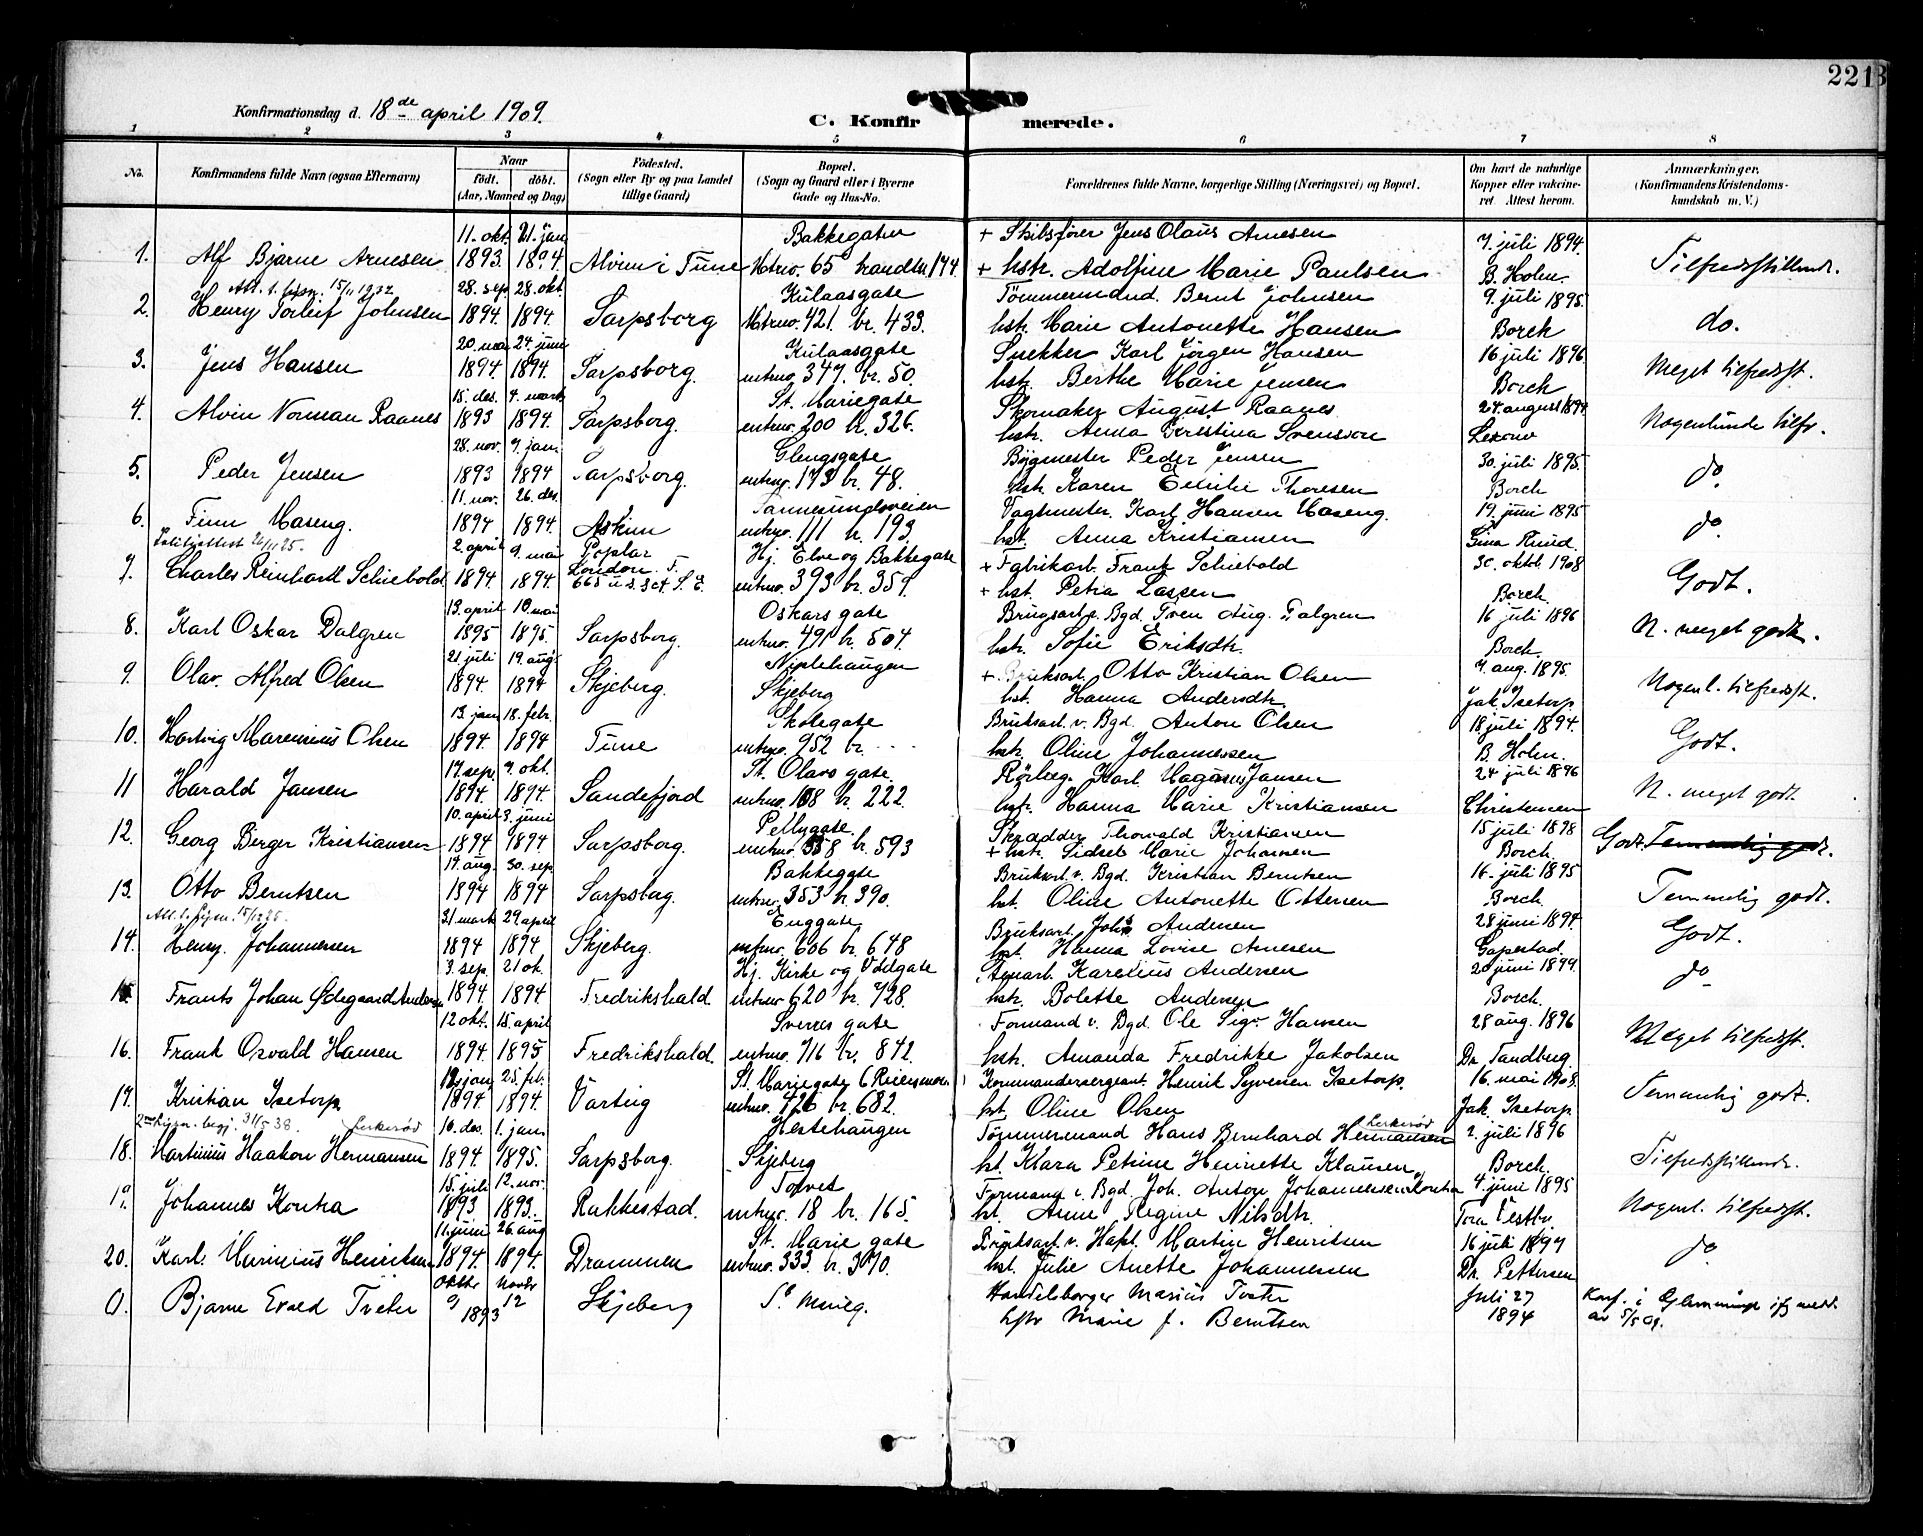 221
Konfirmationsdag d. 18de april 1909.
C. Konfirmerede.
1 2 3 4 5 6 7 8
No.
Konfirmandens fulde Navn (ogsaa Efternavn)
Naar
födt. döbt.
(Aar, Maaned og Dag)
Födested.
(Sogn eller By og paa Landet
tillige Gaard)
Bopæl.
(Sogn og Gaard eller i Byerne
Gade og Hus-No.
Forældrenes fulde Navne, borgerlige Stilling (Næringsvei) og Bopæl.
Om havt de naturlige
Kopper eller vakcine-
ret. Attest herom.
Anmærkninger.
(Konfirmandens Kristendoms-
kundskab m. V.)
11. okt. 21. jan Bakkegaten + Skibsfører Jens Olaus Arnesen 7. juli 1894.
1. Alf Bjarne Arnesen 1893. 1894. Alvim i Tune Mtrno. 65 brandtn 144 + hstr. Adolfine Marie Paulsen B. Holm. Tilfredsstillende.
Att. t. lysn. 15/11 1932 28. sep. 28. okt. Kulaasgate Tömmermand. Bernt Johnsen 9. juli 1895.
2. Henry Torleif Johnsen 1894. 1894. Sarpsborg Mtrno. 421. br. 433. hstr. Marie Antonette Hansen Borch do.
20. mai 24. juni Kulaasgate Snekker Karl Jörgen Hansen 16 juli 1896.
3. Jens Hansen 1894. 1894. Sarpsborg. mtrno. 347. br. 50. hstr. Berthe Marie Jensen Borch Meget tilfredsst.
15. des. 4. mark St. Mariegate Skomaker August Raanes 24. august 1894
4. Alvin Norman Raanes 1893 1894. Sarpsborg. mtrno. 200 br. 326. hstr. Anna Kristina Svensson Nogenlunde tilfr.
28. nov. 7. jan. Glengsgate Bygmester Peder Jensen 30. juli 1895.
5. Peder Jensen 1893 1894 Sarpsborg. mtrno. 173 br. 48. hstr. Karen Emilie Thoresen Borch do.
11. nov. 26. des. Tannesundsveien Vagtmester. Karl Hansen Haseng. 19. juni 1895
6. Finn Haseng. 1894 1894. Askim mtrno. 111 br. 193. hst. Anna Kristiansen Gina Ruud. do.
2. april 9. mai Poplar Hj. Elve og Bakkegate + Fabrikarb. Frank Schiebold 30. oktb. 1908
7. Charles Reinhardt Schiebold 1894 1894. London. mtrno. 393 br. 359. + hst. Petra Lassen Borch. Godt.
13. april 10. mai Oskars gate Brugsarb. p. Bgd. Sven Aug. Dalgren 16 juli 1896
8. Karl Oskar Dalgren 1895 1895. Sarpsborg. mtrno. 491 br. 504. hstr. Sofie Eriksdtr. Borch. N. meget godt.
21. juli 19. aug. Niplehaugen + Bruksarb. Otto Kristian Olsen 7. aug. 1895.
9. Olav. Alfred Olsen 1894. 1894 Skjeberg. Skjeberg hst. Hanna Andersdtr. Jak. Isetorp Nogenl. tilfredsst.
13. jan. 18. febr. Skolegate Bruksarb. v. Bgd. Anton Olsen 18 juli 1894.
10. Hartvig Marenius Olsen 1894. 1894 Tune mtrno. 952 br. . . . hstr. Oline Johannessen B. Holm. Godt.
17. sep. 7. okt. St. Olavs gate. Rörlegg. Karl Magnus Jansen 24 juli 1896
11 Harald Jansen 1894. 1894. Sandefjord mtrno. 108 br. 222. hstr. Hanna Marie Kristiansen Christensen N. meget godt.
10. april 3. juni Pellygate. Skrædder Thorvald Kristiansen 15 juli 1898
12. Georg Berger Kristiansen 1894 1894 Sarpsborg. mtrno. 358 br. 593 + hstr. Sidsel Marie Johansen Borch. Godt. Temmelig godt.
19. aug. 30. sep. Bakkegate Bruksarb. v. Bgd. Kristian Berntsen 16. juli 1895
13. Otto Berntsen 1894 1894 Sarpsborg. mtrno. 353 br. 390. hst. Oline Antonette Ottersen Borch. Temmelig godt.
Att. t. lysn. 15/12 25. 31. mark 29 april Enggate Bruksarb. Johs. Andersen 28 juni 1894.
14. Henry. Johannessen 1894 1894 Skjeberg. mtrno. 606 br. 648 hst. Hanna Lovise Arnesen Gapestad. Godt.
3. sep. 21 ok. Hj. Kirke og Oddgate Karelius Andersen 20 juni 1899.
15. Frants Johan Ødegaard Andersen 1894. 1894 Fredrikshald mtrno 620 br. 728. hstr. Bolette Andersen Borch. do.
12 okt. 15. april Sverres gate Formand v. Bgd. Ole Sigv. Hansen 28 aug. 1896
16. Frank Osvald Hansen 1894. 1895 Fredrikshald. mtrno. 716 br. 842. hstr. Amanda Fredrikke Jakobsen Dr. Sandberg Meget tilfredsst.
jan. 25. fe. St. Mariegate 6 Kommandersergeant. Henrik Syversen Isetorp. 16. mai 1908.
17. Kristian Isetorp. 1894. 1894. Varteig mtrno. 726 br. 682. hst. Oline Olsen Jak. Isetorp Temmelig godt.
31/5 38. 10. des. 1. jan. Hestehaugen Tömmermand Hans Bernhard Hermansen 2. juli 1896
18. Martinius Haakon Hermansen 1894. 1895. Sarpsborg. Skjeberg hst. Klara Petrine Henriette Klausen Borch. Tilfredsstillende.
15. juli 12. nov. Torvet Formann v. Bgd. Joh. Anton Johannessen Kontra 4. juni 1895
19. Johannes Kontra 1893 1893. Rakkestad. mtrno. 18 br. 165. hst. Anne Regine Nilsdtr. Tora Nogenl. tilfredsst.
11. juni 26. aug St. Marie gate Bruksarb. v. Hafsl. Martin Henriksen 16 juli 1897
20. Karl. Marinius Henriksen 1894. 1894. Drammen mtrno. 333. br. 3070. hst. Julie Anette Johannessen Dr. Pettersen do.
oktbr novbr Handelsborger Marius Tveter Juli 27 Konf. i Glemminge ifg. medd.
0. Bjarne Evald Tveter 9 12 1893 Skjeberg St. Marieg. hstr Marie f. Berntsen 1894 av 5/5 09.